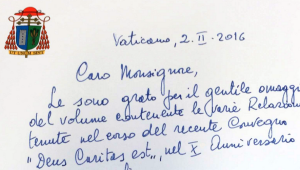 Vaticano, 2.II.2016
Caro Monsignore,
Le sono grato per il gentile omaggio
del volume contenente le varie Relazioni
tenute nel corso del recente Convegno
"Deus Caritas est", nel X Anniversario